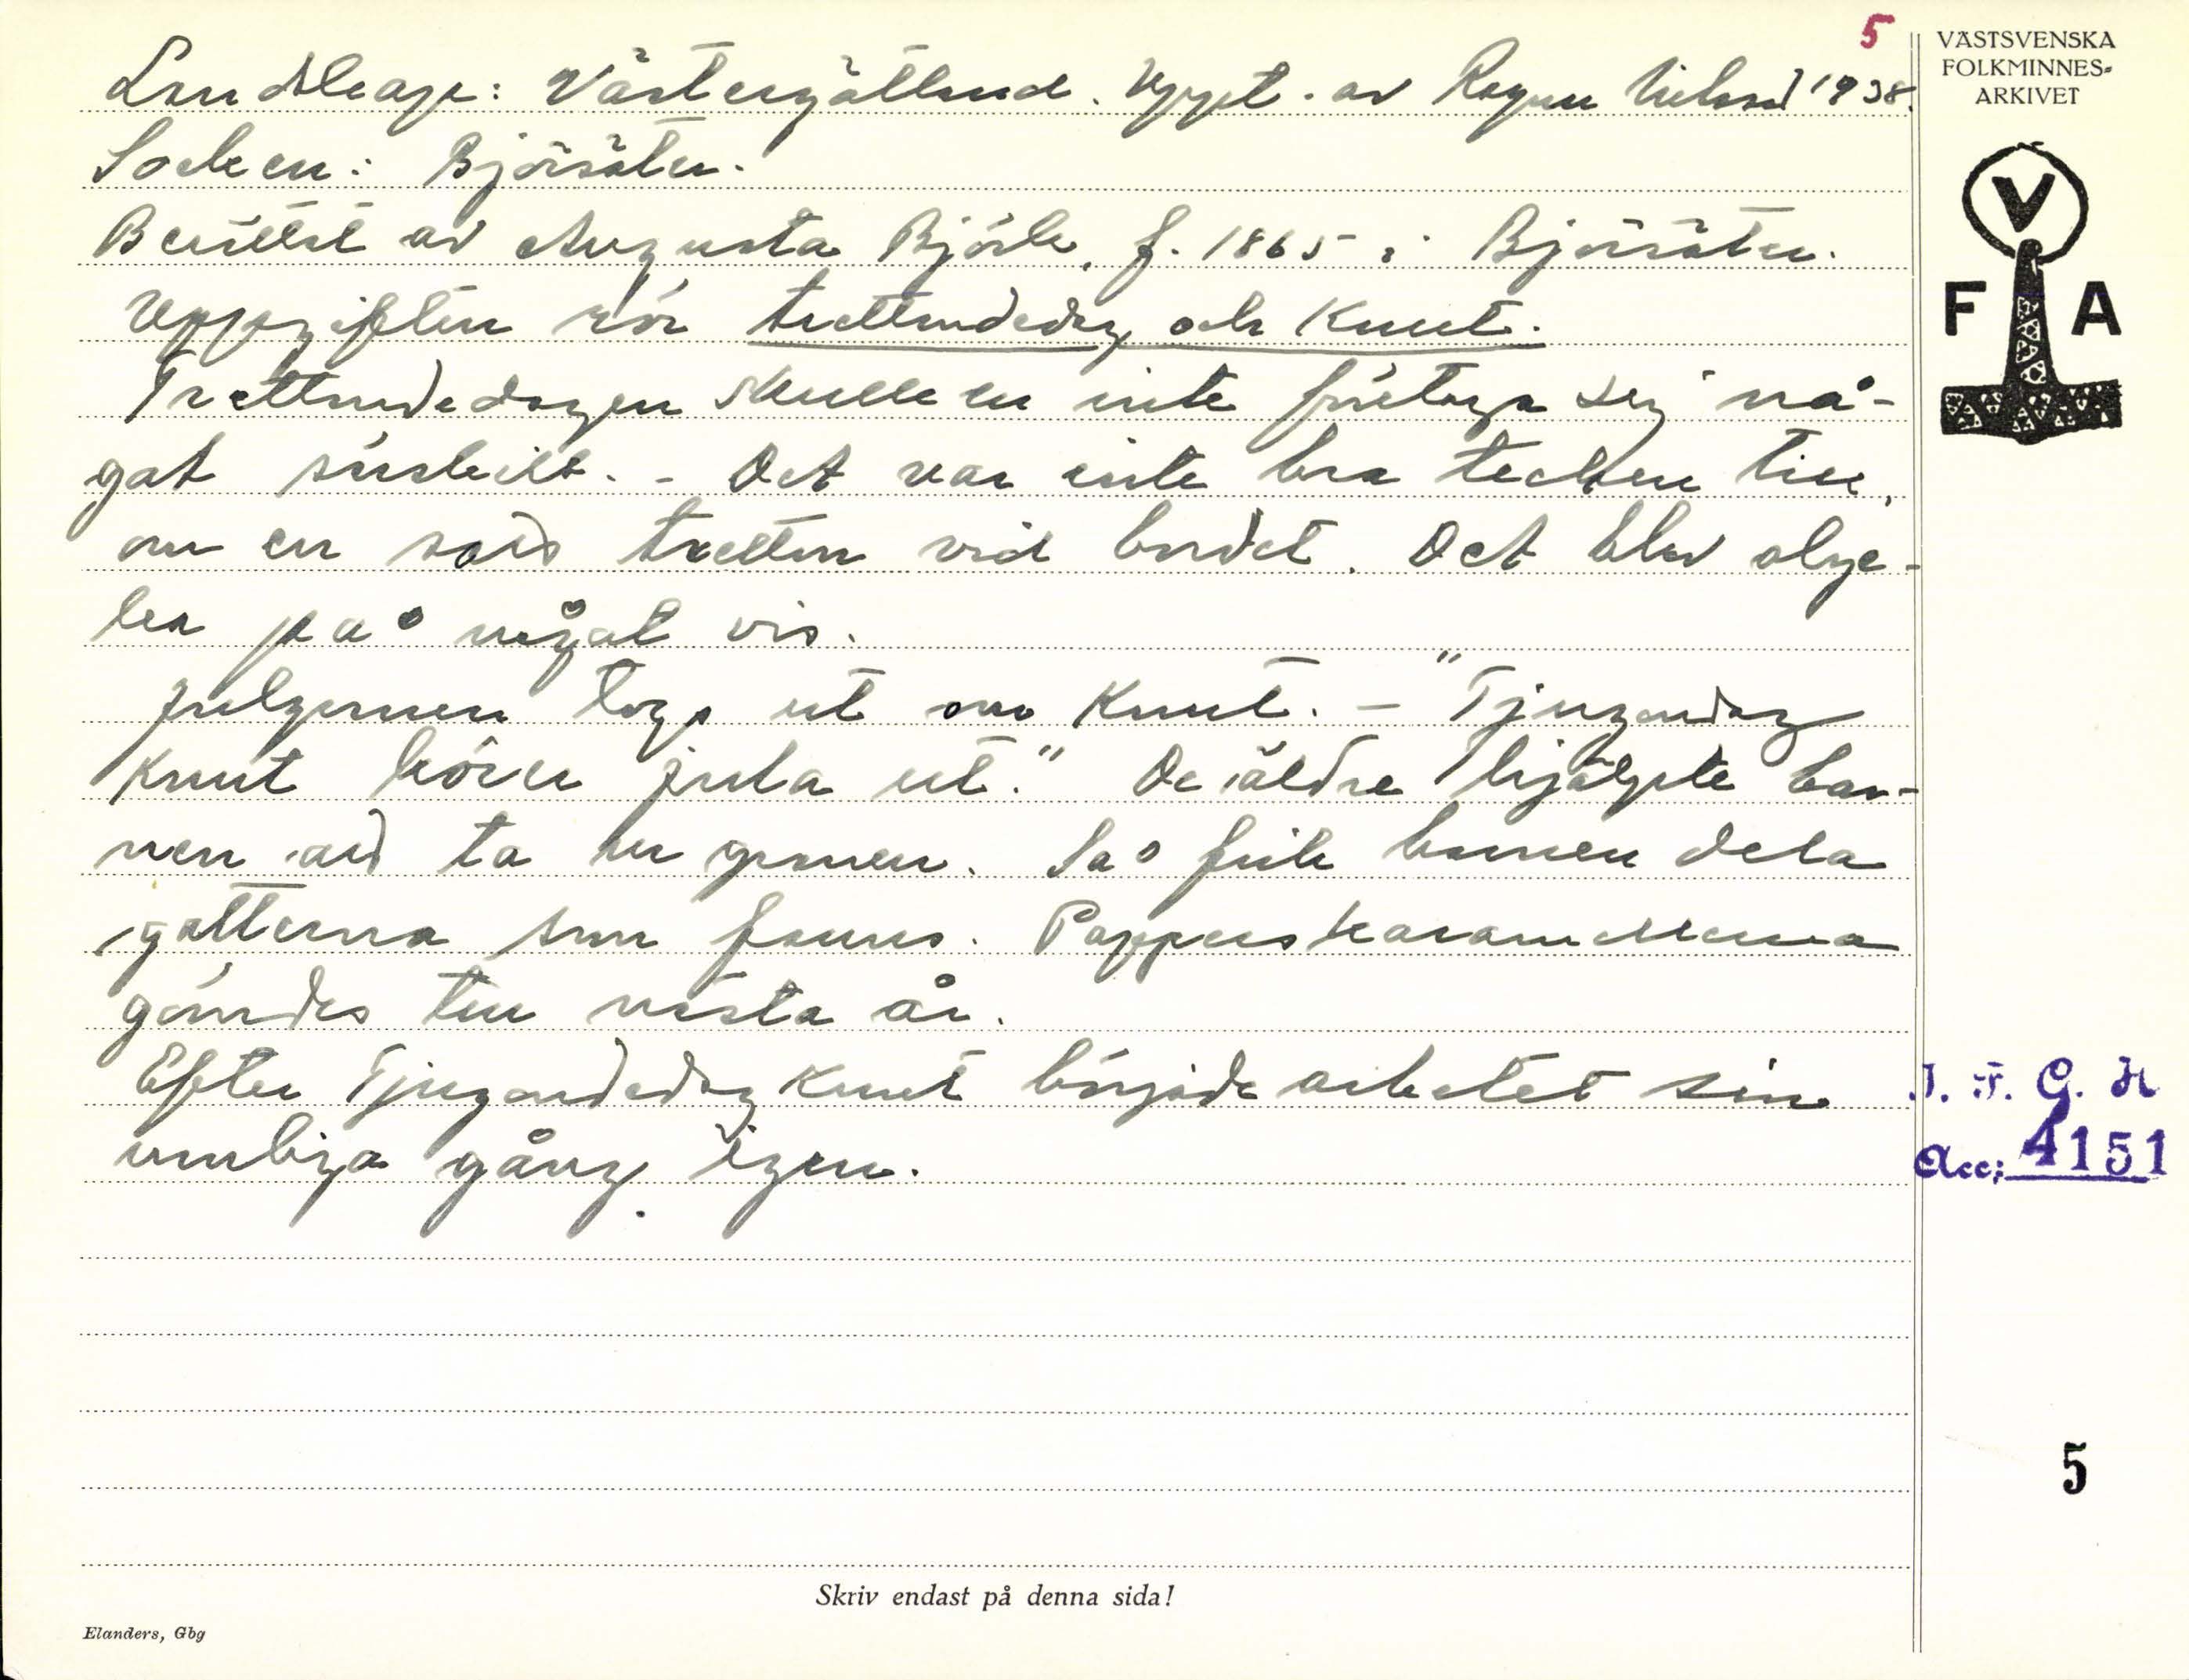 5
VÄSTSVENSKA
FOLKMINNES-
ARKIVET
V
F A
Landskap: Västergötland. Uppt. av Ragnar Nilsson 1938.
Socken: Björsäter.
Berättat av Augusta Björk, f. 1865 i Björsäter.
Uppgiften rör trettondedag och Knut.
Trettondedagen skulle en inte företaga sig nå-
got särskilt. - Det var inte bra tecken till,
om en satt tretton vid bordet. Det blev olyc-
ka på något vis.
Julgranen togs ut om Knut. - "Tjugondag
Knut körer jula ut." De äldre hjälpte bar-
nen att ta ur granen. Så fick barnen dela
gotterna som fanns. Papperskaramellerna
gömdes till nästa år.
Efter Tjugondedag Knut började arbetet sin
vanliga gång igen.
I. F. G. H
Acc: 4151
5
Skriv endast på denna sida!
Elanders, Gbg